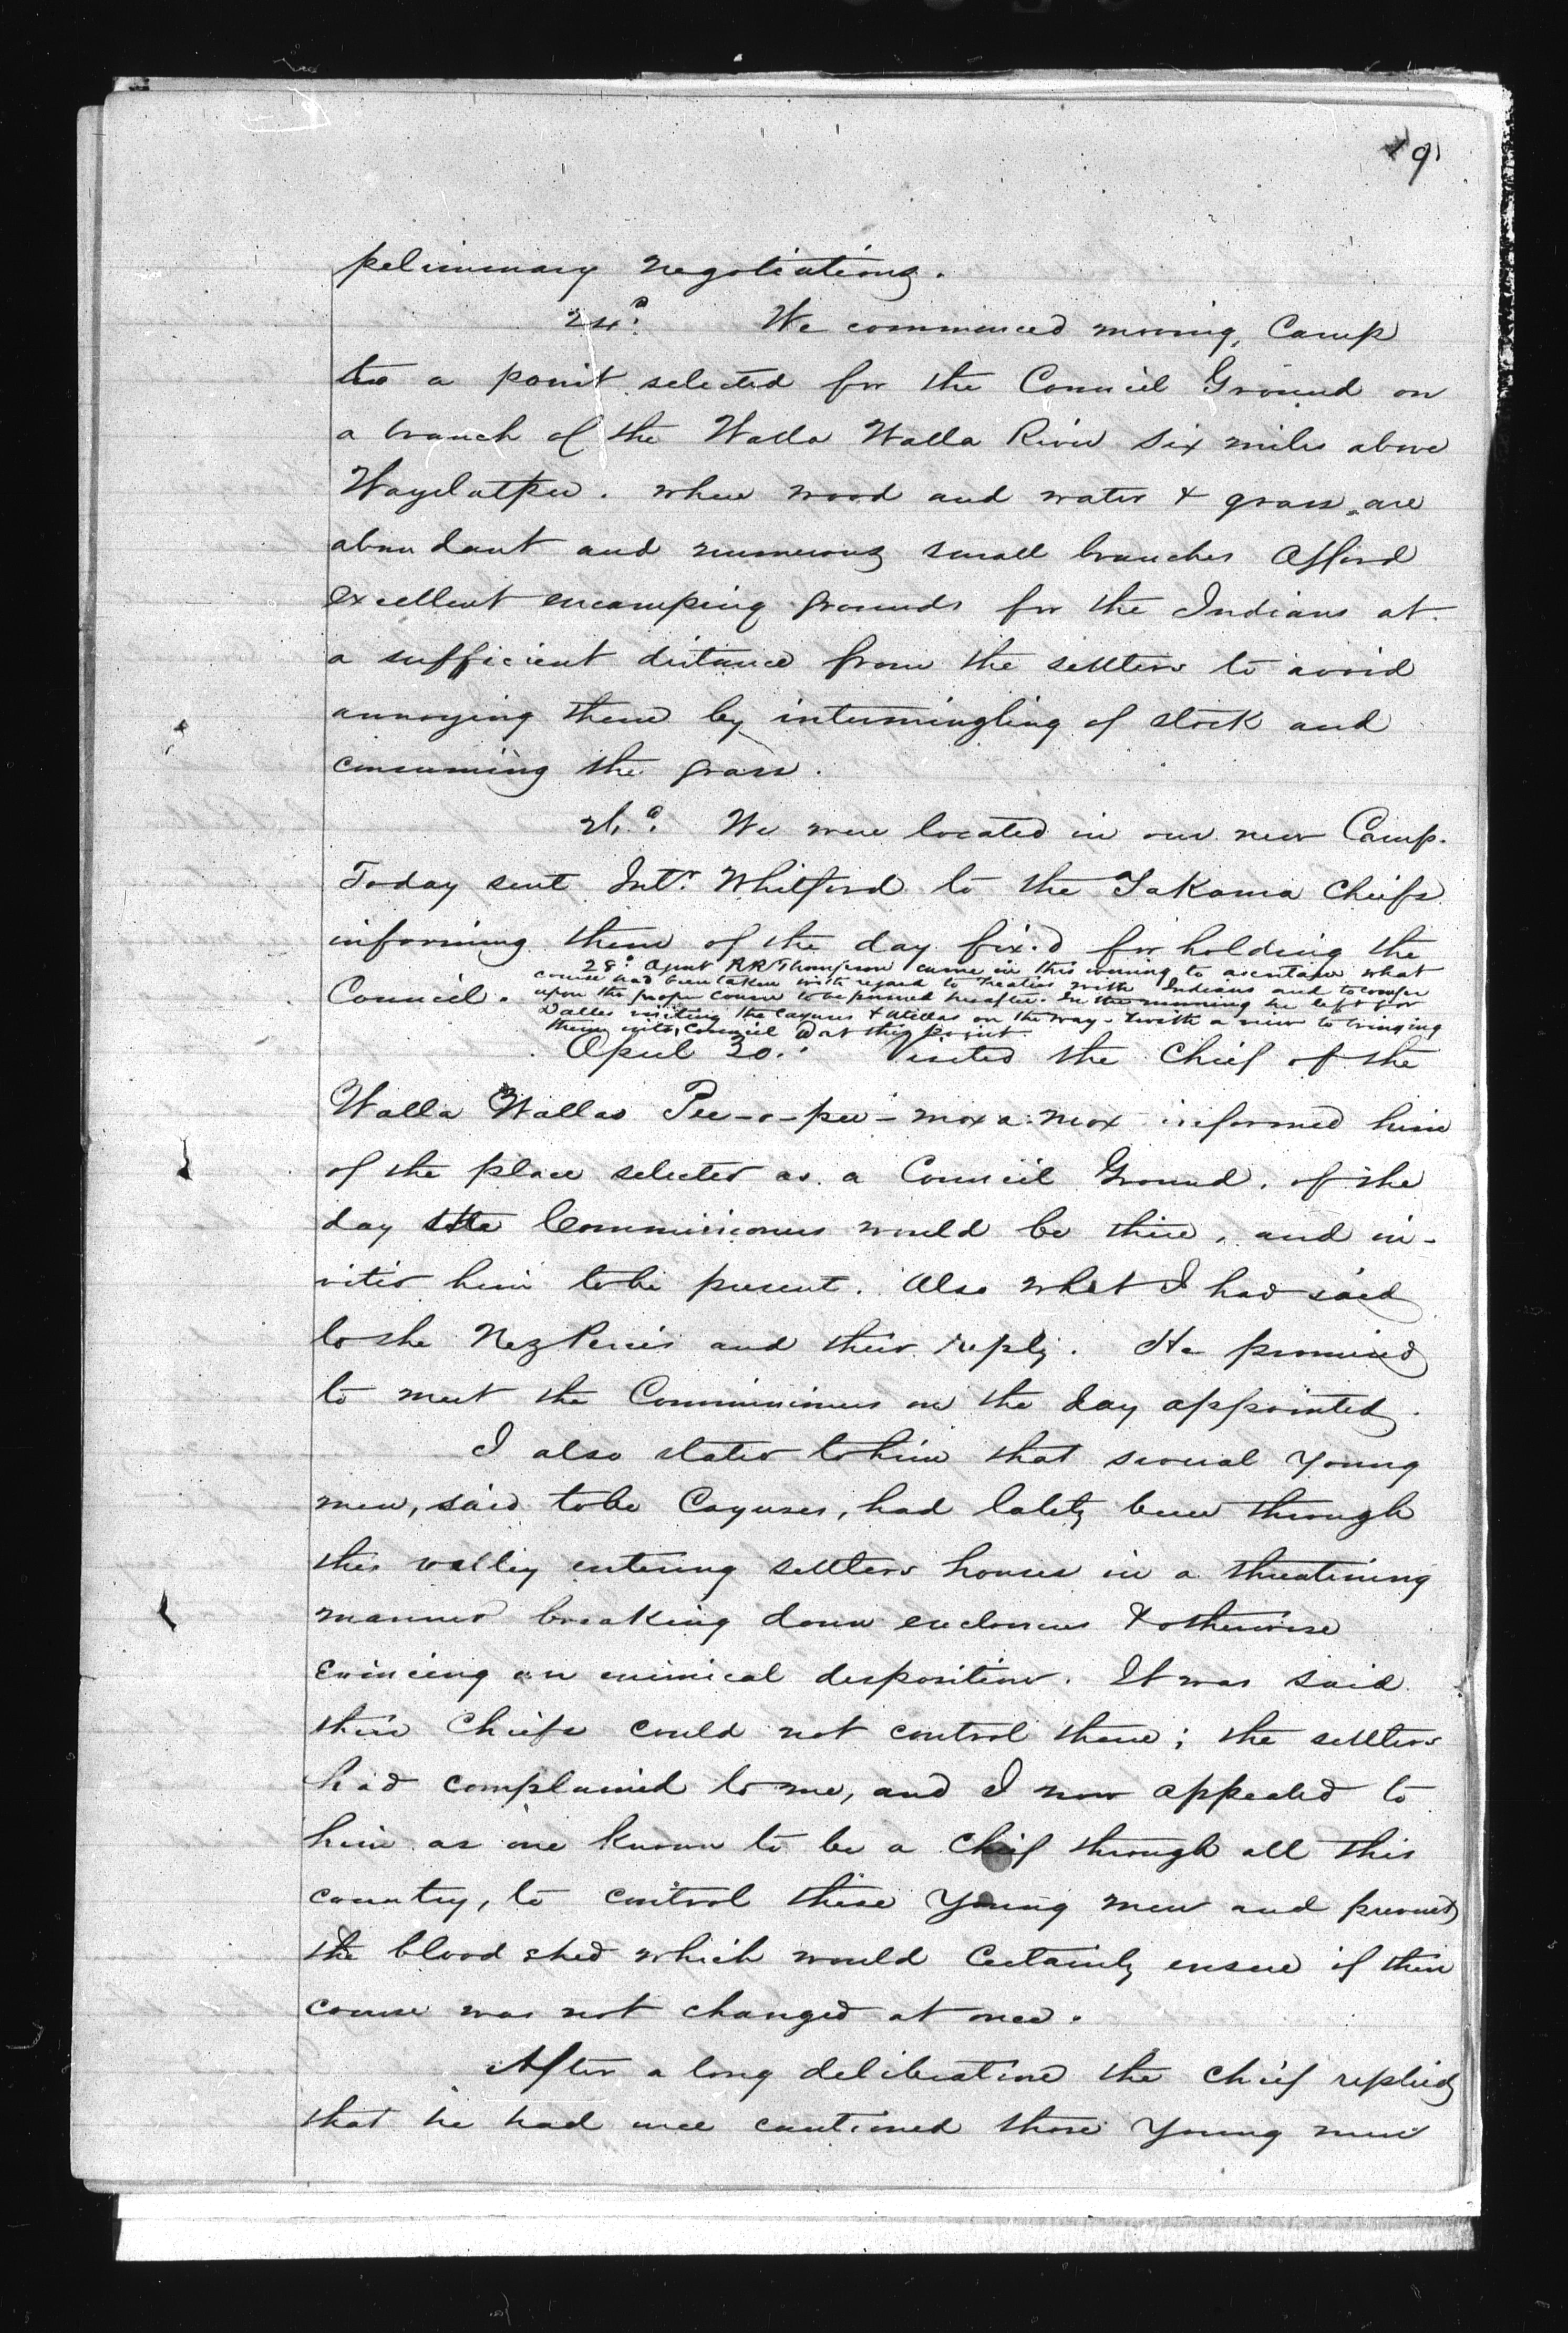 9
peliminary negotiations.
24th. We commenced moving, Camp
to a point selected for the Council Ground on
a branch of the Walla Walla River six miles above
Wayelatpu. where wood and water & grass are
abundant and numerous small branches afford
excellent encamping grounds for the Indians at
a sufficient distance from the settlers to avoid
annoying them by intermingling of stock and
consuming the grass.
We were located in our new Camp.
Today sent Intr. Whitford to the Yakama Chiefs
informing them of the day fix.d for holding the
28. Agent RR Thompson came in this evening to ascertain what
course had been taken with regard to treaties with Indians and to confer
Council. upon the proper course to be pursued hereafter. In the morning he left for
Dalles visiting the Cayuses & Utillas on the way - & with a view to bringing
them into Council at this point
April 30. Visited the Chief of the
Walla Wallas Pee-o-peu-mox a mox informed him
of the place selected as a Council Ground, of the
day the Commissioners would be there, and in-
vited him to be present. Also what I had said
to the Nez Perces and their reply. He promised
to meet the Commissioners on the day appointed.
I also stated to him that several young
men, said to be Cayuses, had lately been through
this valley entering settlers houses in a threatening
manner breaking down enclosures & otherwise
evincing an inimical disposition. It was said
their Chiefs could not control them; the settlers
had complained to me, and I now appealed to
him as one known to be a Chief through all this
country, to control these young men and prevent
the blood shed which would certainly ensue if their
course was not changed at once.
After a long deliberation the Chief replied
that he had once cautioned those young men